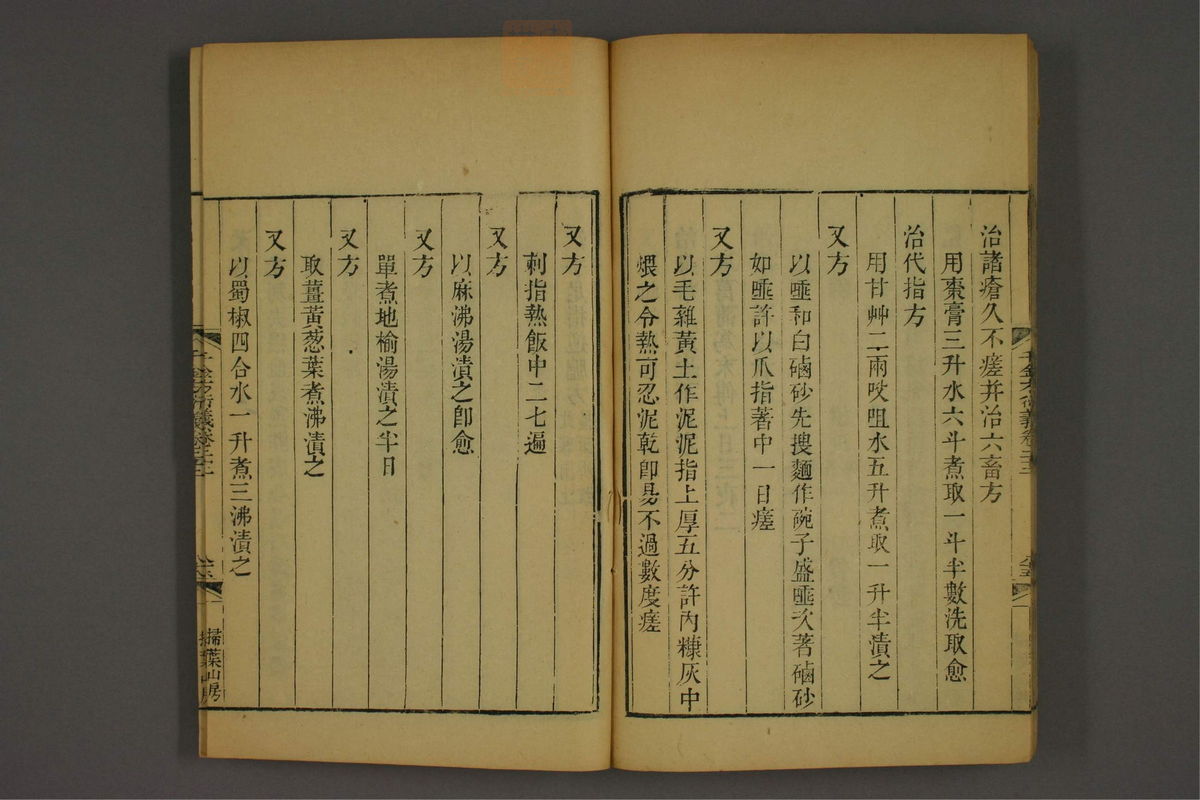 治諸瘡久不瘥并治六畜方
用棗膏三升水六斗煮取一斗半數洗取愈
治代指方
用甘艸二兩㕮咀水五升煮取一升半漬之
又方
以唾和白硇砂先搜麵作碗子盛唾次著硇砂
如唾許以爪指著中一日瘥
又方
以毛雜黃土作泥泥指上厚五分許內糠灰中
煨之令熱可忍泥乾即易不過數度瘥
又方
刺指熱飯中二七遍
又方
以麻沸湯漬之卽愈
又方
單煮地榆湯漬之半日
又方
取薑黃葱葉煮沸漬之
又方
以蜀椒四合水一升煮三沸漬之
掃葉山房